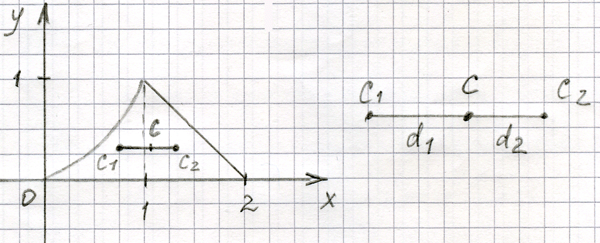 y
1
C
C₁ C₂
0 1 2 x
C₁ C C₂
d₁ d₂